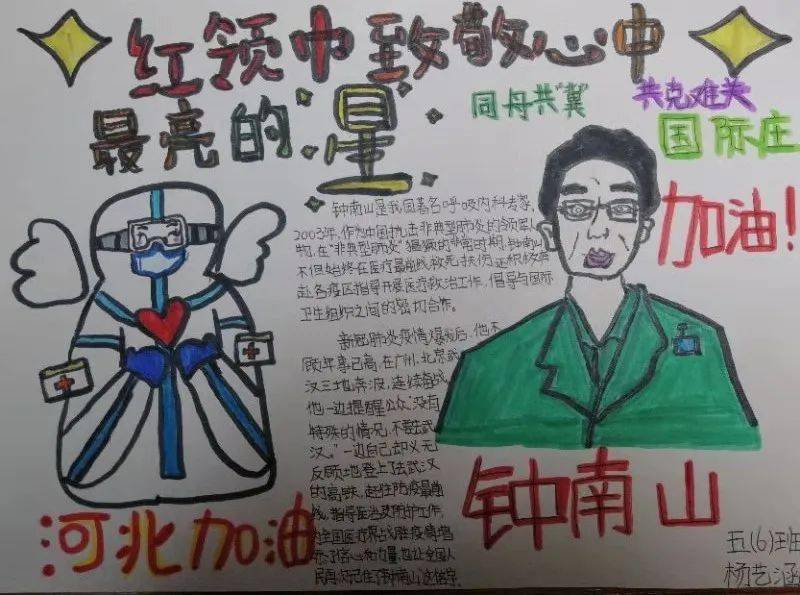 红领巾致敬心中
最亮的星
同舟共"冀"
共克难关
国际庄
加油！
钟南山是我国著名呼吸内科专家,
2003年,作为中国抗击非典型肺炎的领军人
物,在"非典型肺炎"猖獗的非常时期,钟南山
不但始终在医疗最前线救死扶伤,还积极奔
赴各疫区指导开展医疗救治工作,倡导与国际
卫生组织之间的密切合作。
新冠肺炎疫情爆发后,他不
顾年事已高,在广州,北京,武
汉三地奔波,连续奋战
他一边提醒公众"没有
特殊的情况,不要去武
汉。"一边自己却义无
反顾地登上了去武汉
的高铁,赴往防疫最前
线,指导医治及防护工作,
为全国医疗界战胜疫情增
添了信心和力量,也让全国人
民再次记住了钟南山这个名字
河北加油
钟南山
五(6)班
杨艺涵